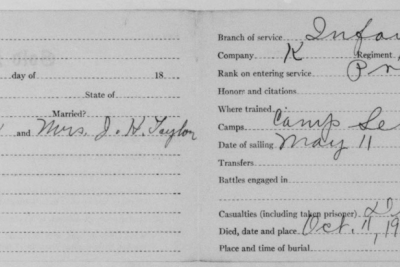 day of 18
State of
Married?
and Mrs. J. H. Taylor
Branch of service
Company K Regiment
Rank on entering service
Honor and citations
Where trained
Camps Camp
Date of sailing May 11
Transfers
Battles engaged in
Casualties (including taken prisoner)
Died, date and place Oct. 11, 19
Place and time of burial